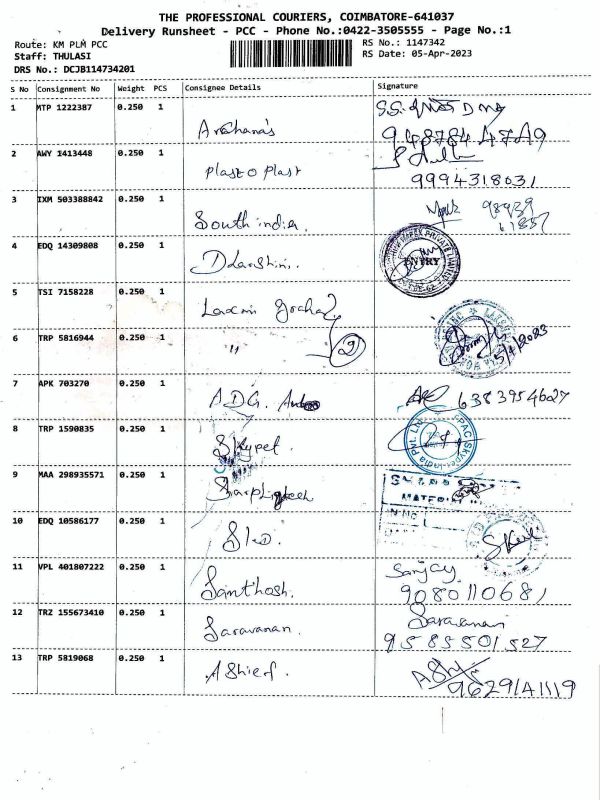 THE PROFESSIONAL COURIERS, COIMBATORE-641037
Delivery Runsheet - PCC - Phone No.:0422-3505555 - Page No.:1
Route: KM PLM PCC
RS No.: 1147342
Staff: THULASI
RS Date: 05-Apr-2023
DRS No.: DCJB114734201
S No Consignment No Weight PCS Consignee Details Signature
1 MTP 1222387 0.250 1 Archana's
2 AWY 1413448 0.250 1 Plast o plast 9994318031
3 IXM 503388842 0.250 1 South india.
4 EDQ 14309808 0.250 1 ENTRY
5 TSI 7158228 0.250 1 Laxmi
6 TRP 5816944 0.250 1 " 2 5/4/2023
7 APK 703270 0.250 1 A.D.G. 6383954627
8 TRP 1590835 0.250 1 Skypet
9 MAA 298935571 0.250 1
10 EDQ 10586177 0.250 1
11 VPL 401807222 0.250 1 Santhosh. Sanjay
9080110681
12 TRZ 155673410 0.250 1 Saravanan. Saravanan
9585501527
13 TRP 5819068 0.250 1 AShief.